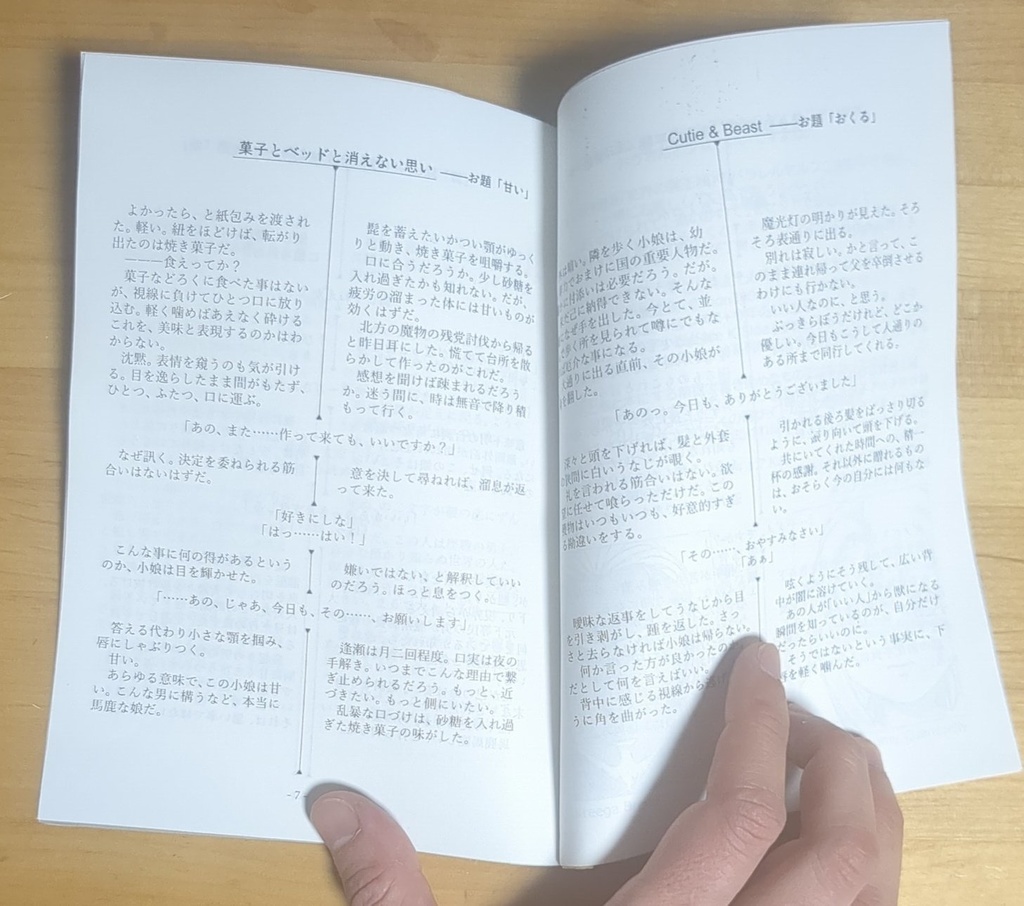 菓子とベッドと消えない思い ――お題「甘い」
よかったら、と紙包みを渡され
た。軽い。紐をほどけば、転がり
出たのは焼き菓子だ。
―――食えってか？
菓子などろくに食べた事はない
が、視線に負けてひとつ口に放り
込む。軽く噛めばあえなく砕ける
これを、美味と表現するのかはわ
からない。
沈黙。表情を窺うのも気が引け
る。目を逸らしたまま間がもたず、
ひとつ、ふたつ、口に運ぶ。
髭を蓄えたいかつい顎がゆっく
りと動き、焼き菓子を咀嚼する。
口に合うだろうか。少し砂糖を
入れ過ぎたかも知れない。だが、
疲労の溜まった体には甘いものが
効くはずだ。
北方の魔物の残党討伐から帰る
と昨日耳にした。慌てて台所を散
らかして作ったのがこれだ。
感想を聞けば疎まれるだろう
か。迷う間に、時は無音で降り積
もって行く。
「あの、また……作って来ても、いいですか？」
なぜ訊く。決定を委ねられる筋
合いはないはずだ。
意を決して尋ねれば、溜息が返
って来た。
「好きにしな」
「はっ……はい！」
こんな事に何の得があるという
のか、小娘は目を輝かせた。
嫌いではない、と解釈していい
のだろう。ほっと息をつく。
「……あの、じゃあ、今日も、その……、お願いします」
答える代わり小さな顎を掴み、
唇にしゃぶりつく。
甘い。
あらゆる意味で、この小娘は甘
い。こんな男に構うなど、本当に
馬鹿な娘だ。
逢瀬は月二回程度。口実は夜の
手解き。いつまでこんな理由で繋
ぎ止められるだろう。もっと、近
づきたい。もっと側にいたい。
乱暴な口づけは、砂糖を入れ過
ぎた焼き菓子の味がした。
- 7 -
Cutie & Beast ――お題「おくる」
隣を歩く小娘は、幼
でおまけに国の重要人物だ。
付添いは必要だろう。だが、
己に納得できない。そんな
なぜ手を出した。今とて、並
歩く所を見られて噂にでもな
厄介な事になる。
通りに出る直前、その小娘が
魔光灯の明かりが見えた。そろ
そろ表通りに出る。
別れは寂しい。かと言って、こ
のまま連れ帰って父を卒倒させる
わけにも行かない。
いい人なのに、と思う。
ぶっきらぼうだけれど、どこか
優しい。今日もこうして人通りの
ある所まで同行してくれる。
「あのっ。今日も、ありがとうございました」
と頭を下げれば、髪と外套
間に白いうなじが覗く。
礼を言われる筋合いはない。欲
に任せて喰らっただけだ。この
物はいつもいつも、好意的すぎ
る勘違いをする。
引かれる後ろ髪をばっさり切る
ように、振り向いて頭を下げる。
共にいてくれた時間への、精一
杯の感謝。それ以外に贈れるもの
は、おそらく今の自分には何もな
い。
「その……、おやすみなさい」
「あぁ」
曖昧な返事をしてうなじから目
を引き剥がし、踵を返した。さっ
さと去らなければ小娘は帰らない。
何か言った方が良かったのか
だとして何を言えばいい。
背中に感じる視線から
うに角を曲がった。
呟くようにそう残して、広い背
中が闇に溶けていく。
あの人が「いい人」から獣になる
瞬間を知っているのが、自分だけ
だったらいいのに。
そうではないという事実に、下
を軽く噛んだ。